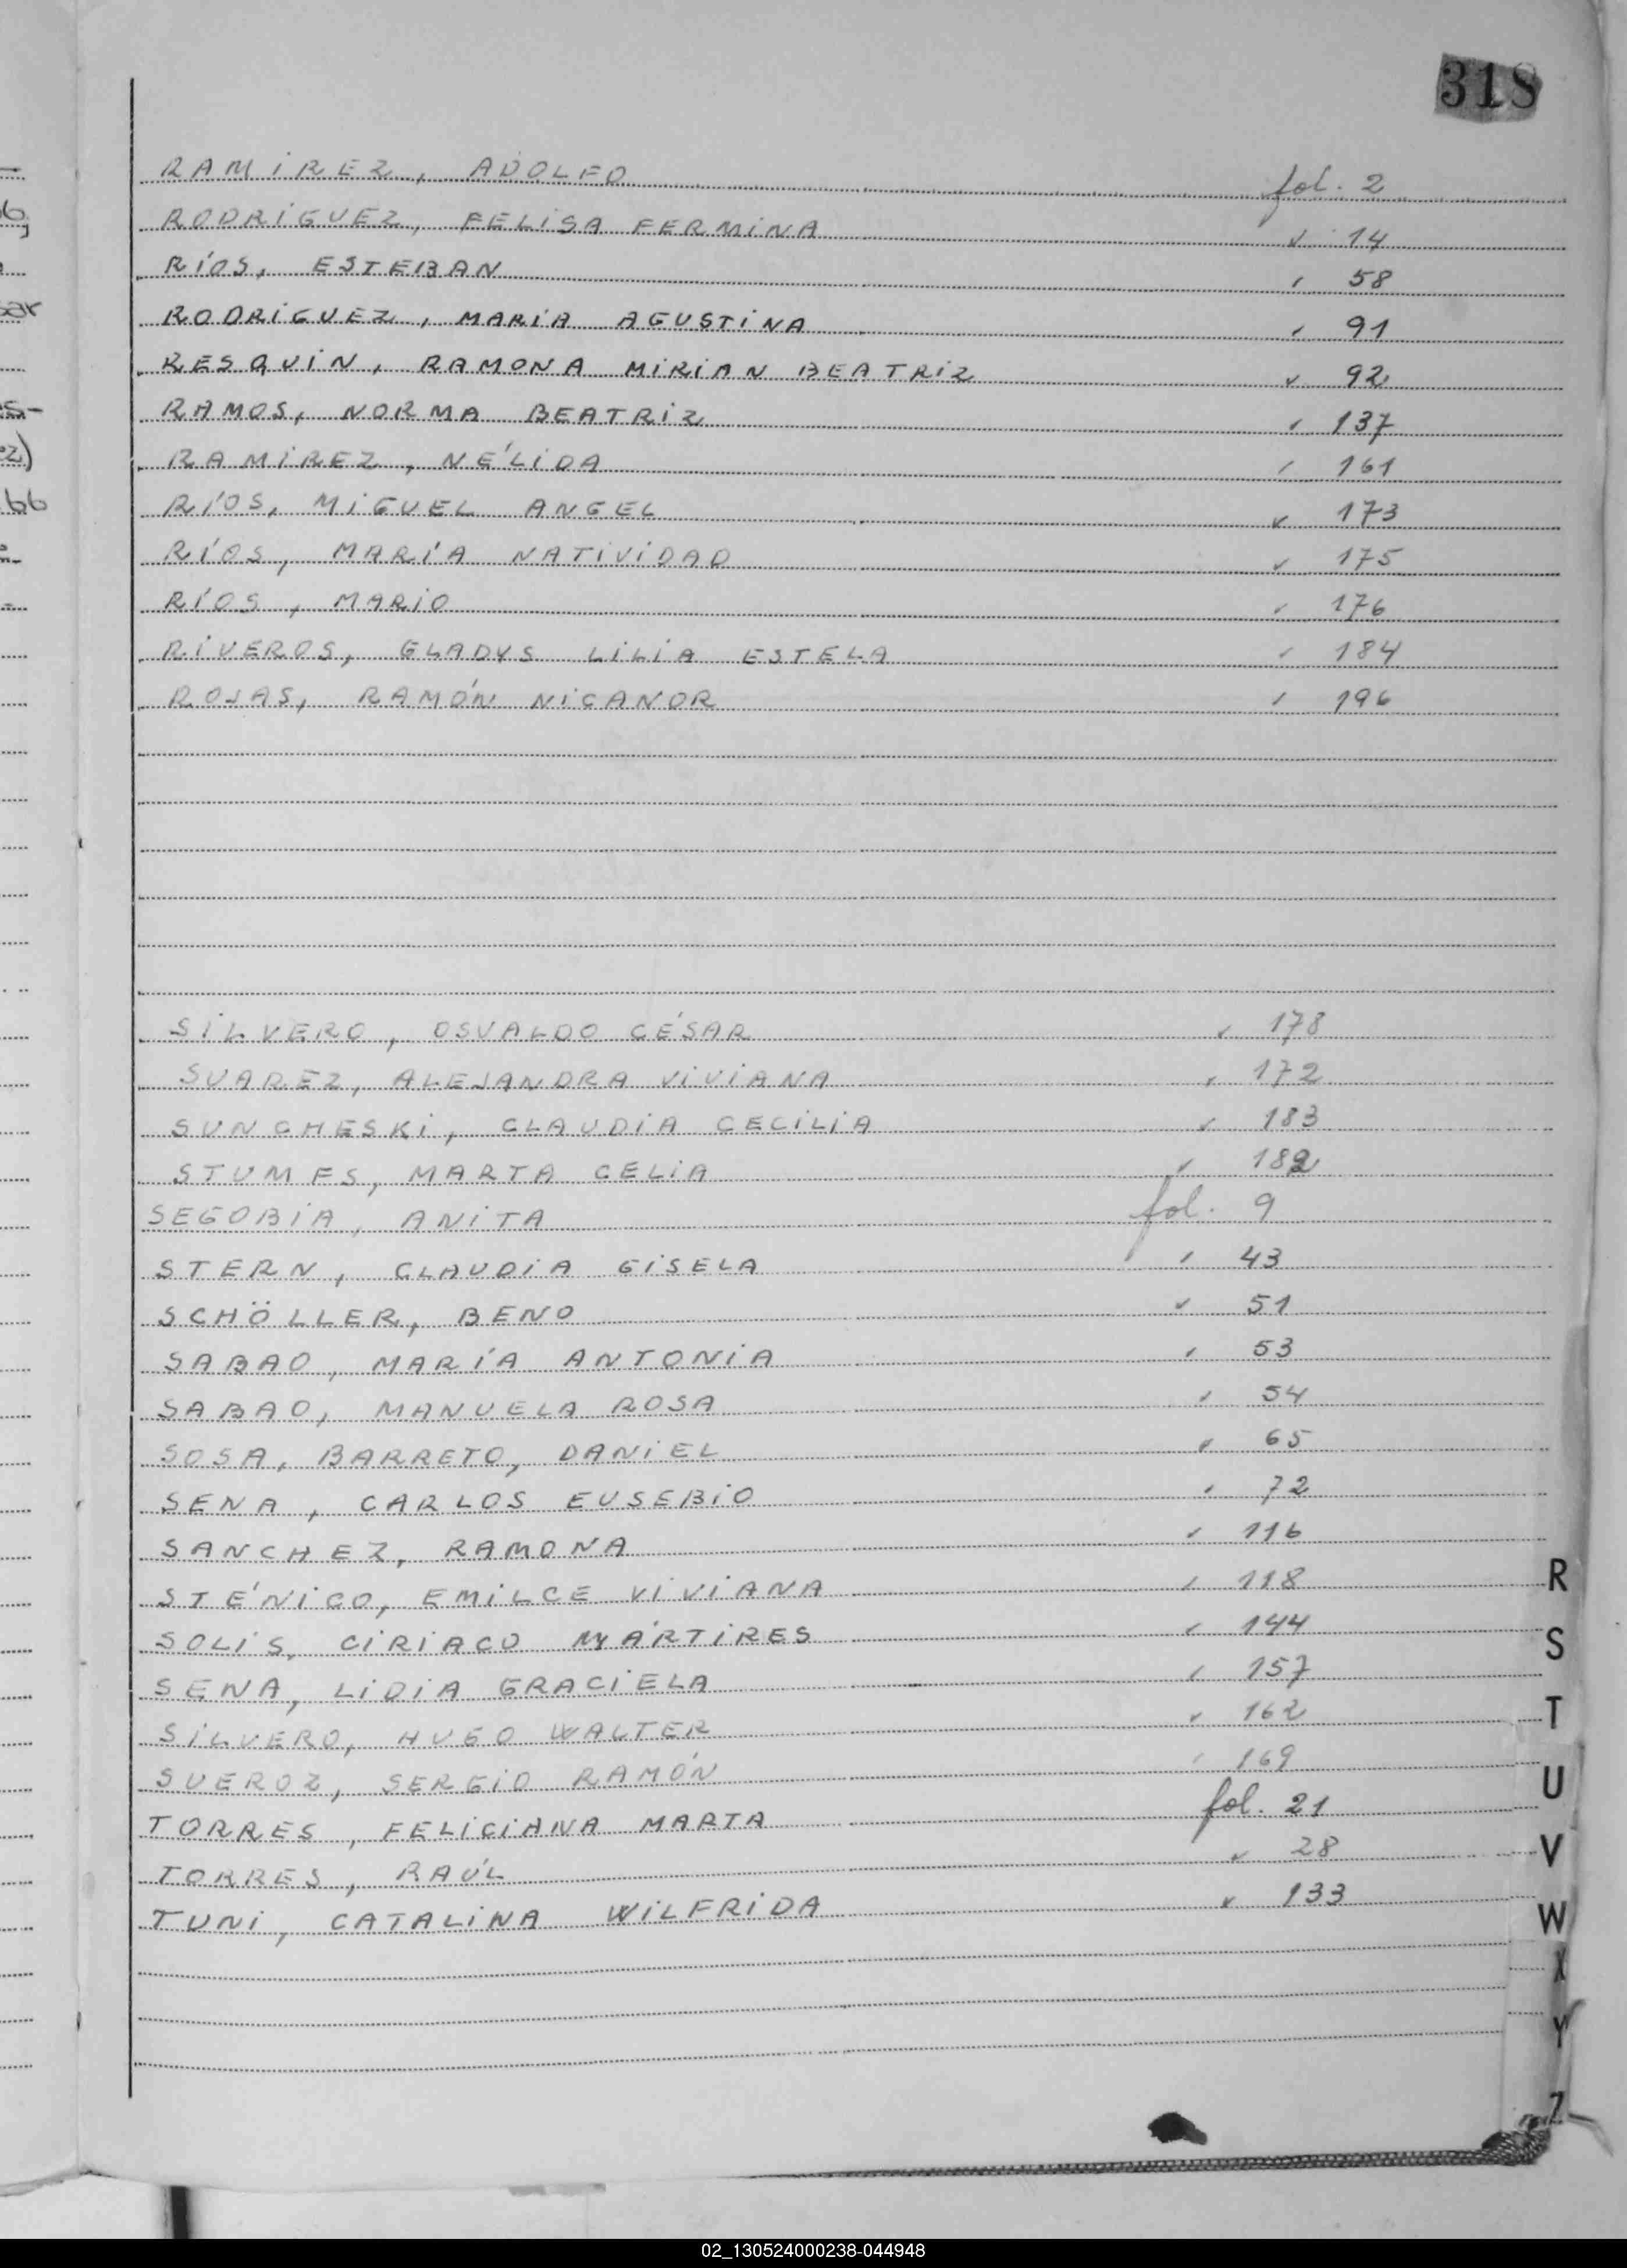 318
RAMIREZ, ADOLFO fol. 2
RODRIGUEZ, FELISA FERMINA " 14
RÍOS, ESTEBAN " 58
RODRIGUEZ, MARÍA AGUSTINA " 91
RESQUIN, RAMONA MIRIAN BEATRIZ " 92
RAMOS, NORMA BEATRIZ " 137
RAMIREZ, NÉLIDA " 161
RÍOS, MIGUEL ANGEL " 173
RÍOS, MARÍA NATIVIDAD " 175
RÍOS, MARIO " 176
RIVEROS, GLADYS LILIA ESTELA " 184
ROJAS, RAMÓN NICANOR " 196
SILVERO, OSVALDO CÉSAR " 178
SUAREZ, ALEJANDRA VIVIANA " 172
SUNCHESKI, CLAUDIA CECILIA " 183
STUMFS, MARTA CELIA " 182
SEGOBIA, ANITA fol. 9
STERN, CLAUDIA GISELA " 43
SCHÖLLER, BENO " 51
SABAO, MARÍA ANTONIA " 53
SABAO, MANUELA ROSA " 54
SOSA, BARRETO, DANIEL " 65
SENA, CARLOS EUSEBIO " 72
SANCHEZ, RAMONA " 116
STÉNICO, EMILCE VIVIANA " 118
SOLIS, CIRIACO MÁRTIRES " 144
SENA, LIDIA GRACIELA " 157
SILVERO, HUGO WALTER " 162
SUEROZ, SERGIO RAMÓN " 169
TORRES, FELICIANA MARTA fol. 21
TORRES, RAÚL " 28
TUNI, CATALINA WILFRIDA " 133
R
S
T
U
V
W
X
Y
Z
02_130524000238-044948